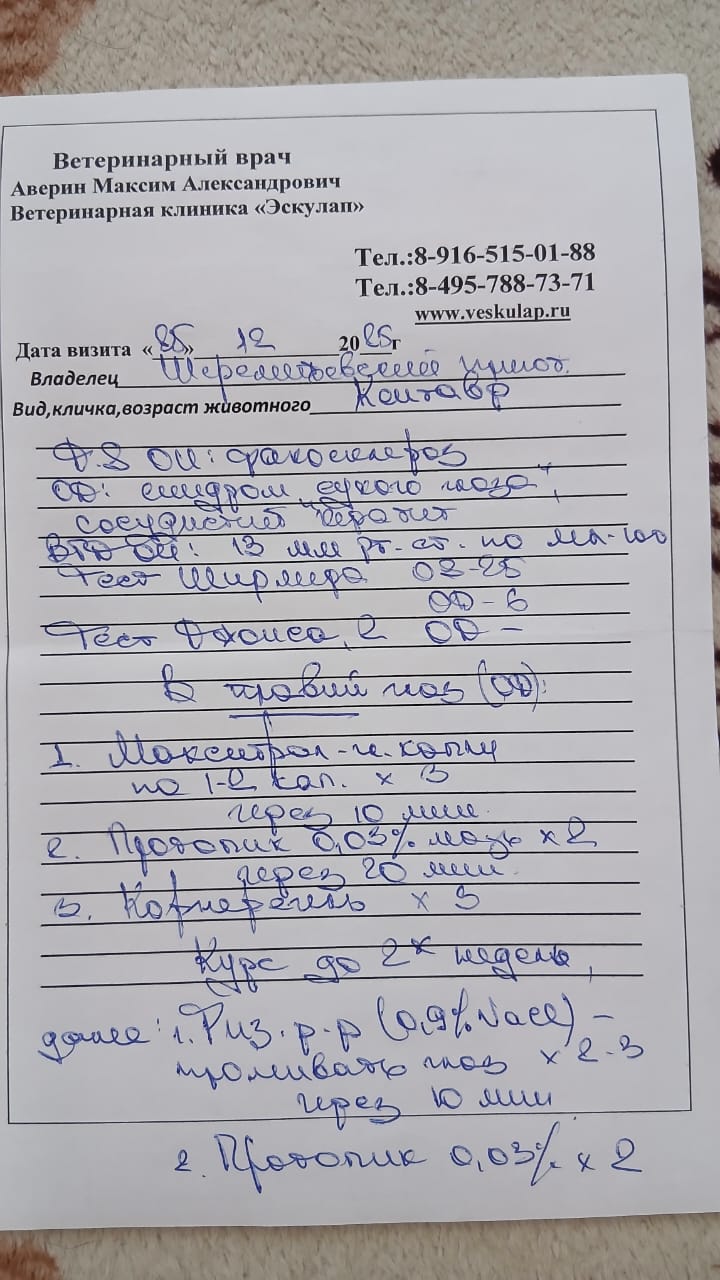 Ветеринарный врач
Аверин Максим Александрович
Ветеринарная клиника «Эскулап»
Тел.:8-916-515-01-88
Тел.:8-495-788-73-71
www.veskulap.ru
Дата визита «25» 12 2025г
Владелец Шереметьевский приют.
Вид,кличка,возраст животного Кентавр
D.S OU: факосклероз
OD: синдром „сухого глаза",
сосудистый кератит
ВГД OU: 13 мм рт. ст. по
Тест Ширмера OS-25
OD - 6
Тест Джонса, 2 OD -
В правый глаз (OD):
1. Макситрол - гл. капли
по 1-2 кап. x 3
через 10 мин.
2. Протопик 0,03% мазь x 2
через 20 мин.
3. Корнерегель x 3
Курс до 2х недель,
далее: 1. Физ. р-р (0,9% NaCl) -
промывать глаз x 2-3
через 10 мин
2. Протопик 0,03% x 2